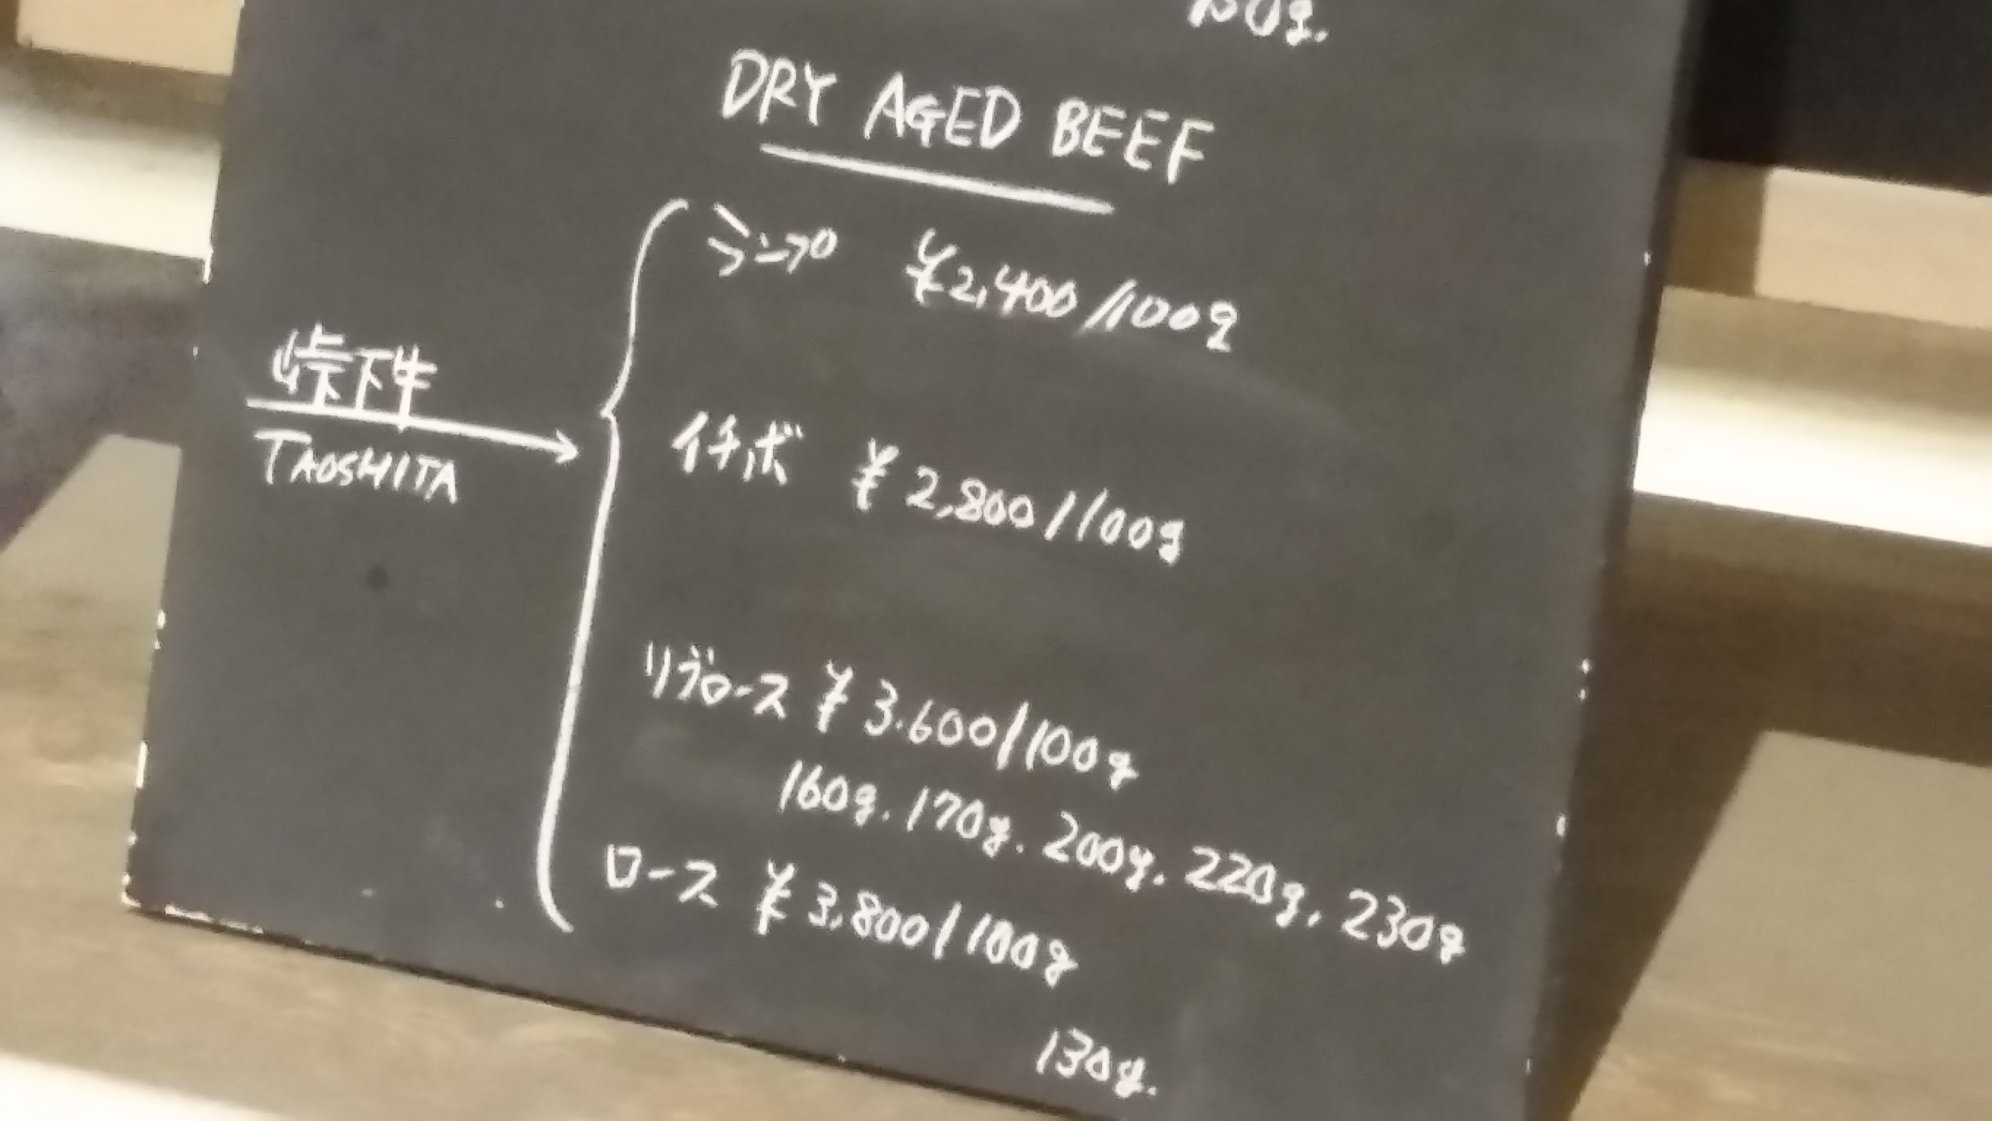 DRY AGED BEEF
ランプ ¥2,400/100g
峠下牛
TAOSHITA
イチボ ¥2,800/100g
リブロース ¥3.600/100g
160g. 170g. 200g. 220g. 230g
ロース ¥3,800/100g
130g.